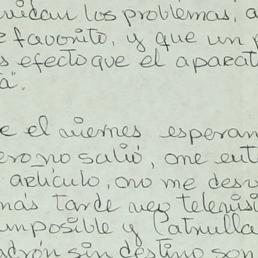 los problemas, a
favorito, y que un
efecto que el aparat
a".
e el viernes esperan
ero no salió, me ent
artículo, no me des
mas tarde veo televis
imposible y Patrulla
adrón sin destino son